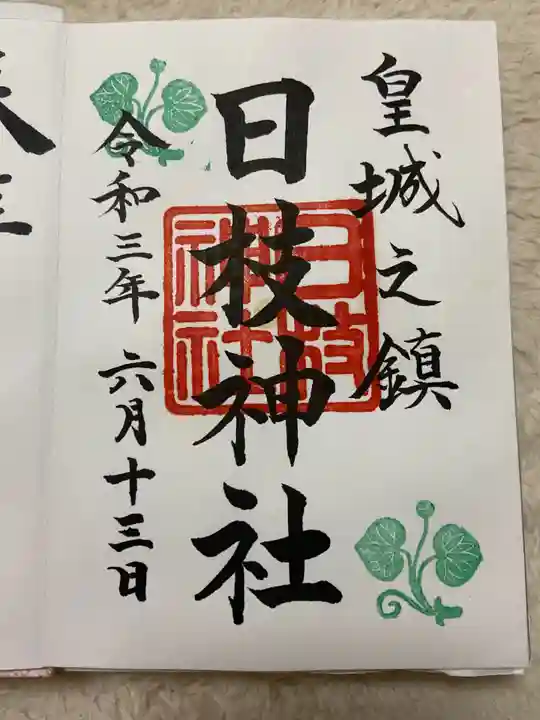 皇城之鎮
日枝神社
日枝神社
令和三年六月十三日